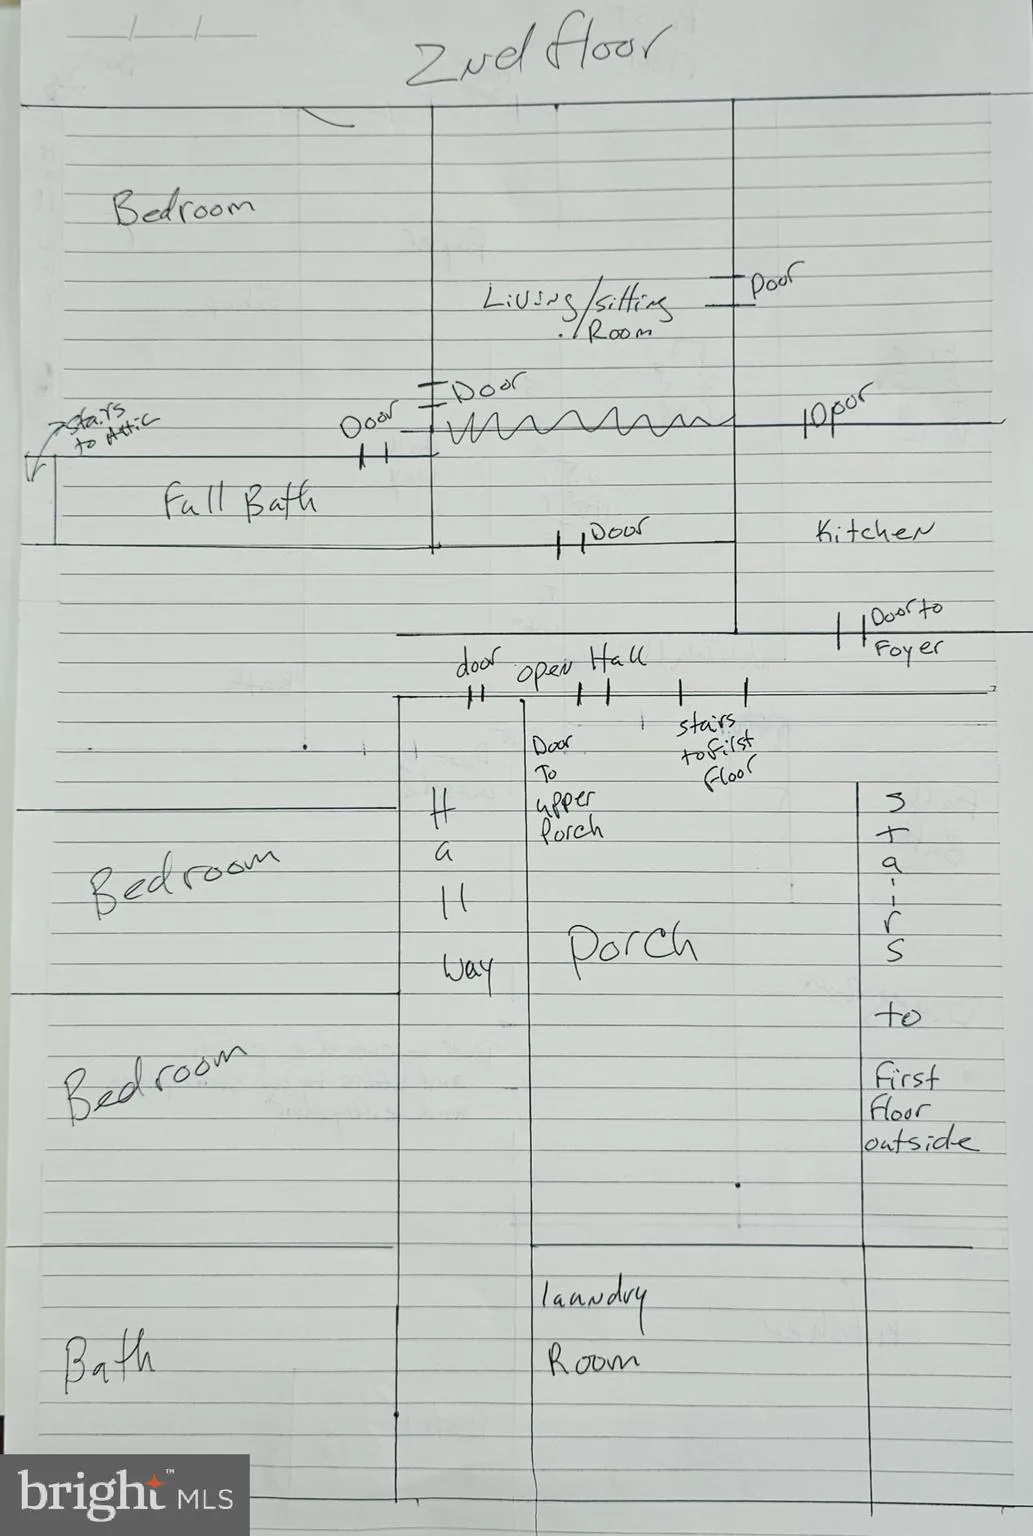 2nd floor
Bedroom
Door
Living/sitting
Room
Door
Door
Door
stairs
to Attic
Full Bath
Door
Kitchen
Door to
Foyer
door
open Hall
Door
To
upper
Porch
stairs
to first
floor
H
a
ll
way
Bedroom
Porch
S
t
a
i
r
s
to
first
floor
outside
Bedroom
laundry
Room
Bath
bright™ MLS